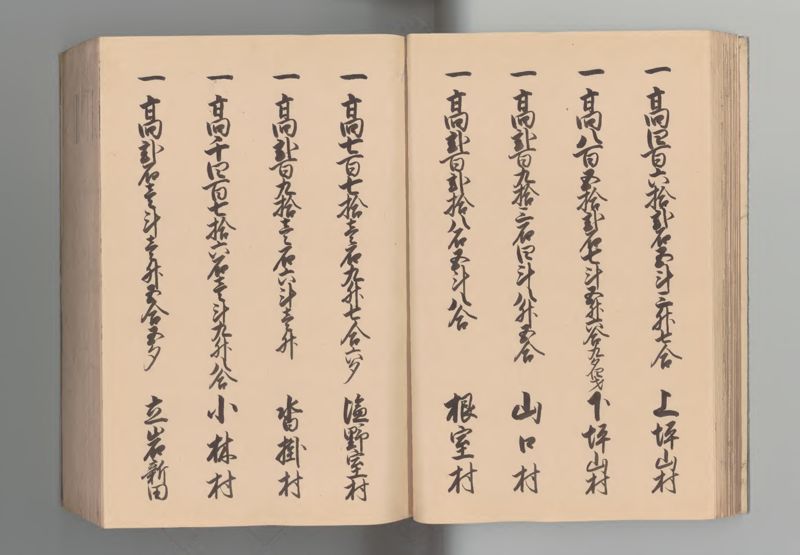 一 高四百六拾弐石五斗三升七合 上坪山村
一 高八百五拾弐石七斗五升六合九夕 下坪山村
一 高弐百九拾三石四斗八升五合 山口村
一 高弐百弐拾八石五斗八合 根室村
一 高七百七拾壱石九升七合六夕 塩野室村
一 高弐百九拾壱石六斗壱升 沓掛村
一 高千四百七拾六石壱斗九升八合 小林村
一 高弐石壱斗壱升五合五夕 立岩新田